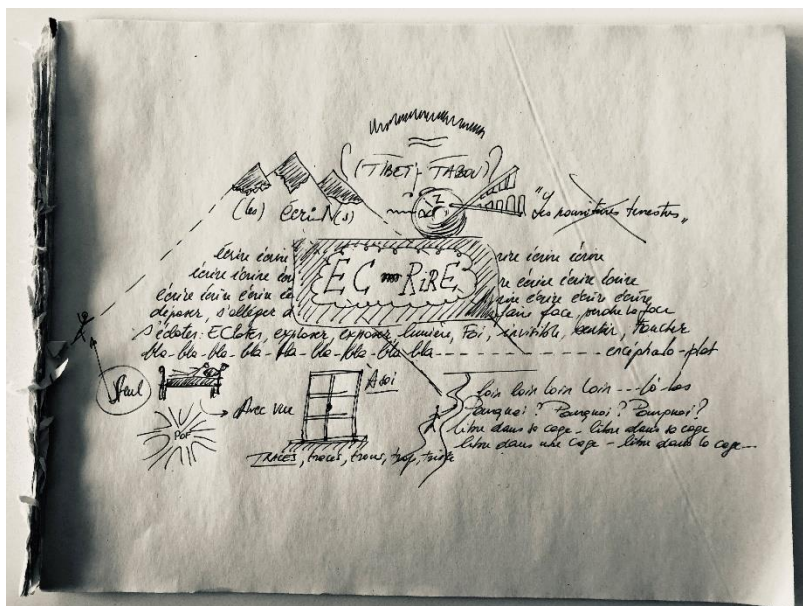 (TIBET - TABOU)
"Les nourritures terrestres"
(les) ÉcriN(s)
EC RiRE
écrire écrire
rire écrire écrire
écrire écrire
re écrire écrire écrire
écrire écrire écrire
rire écrire écrire écrire
déposer, s'alléger
faire face, perdre la face
s'éclater: EClater, exploser, exposer, lumière, Foi, invisible, sentir, toucher
bla-bla-bla-bla-bla-bla-bla-bla-bla
encéphalo-plat
Seul
POF
Avec vue
A soi
TRACES, traces, trous, trop, triste
loin loin loin loin --- là-bas
Pourquoi? Pourquoi? Pourquoi?
libre dans sa cage - libre dans sa cage
libre dans une cage - libre dans la cage